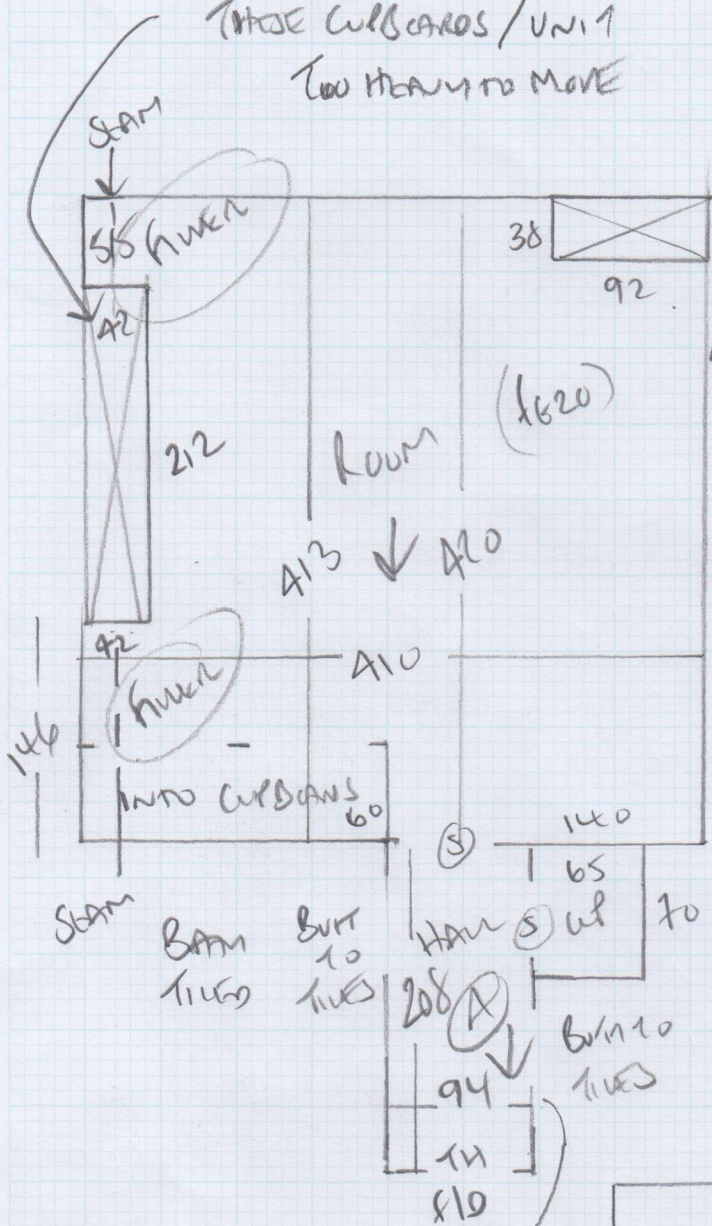 THESE CUPBOARDS/UNIT
TOO HEAVY TO MOVE
SEAM
58 FILLER
38
92
42
212
ROOM
413
420
42
FILLER
410
146
INTO CUPBOARDS
60
S
140
65
SEAM
BATH
TILED
BUTT
TO
TILES
HALL
S
CUP
70
208
A
BUTT TO
TILES
94
F/D